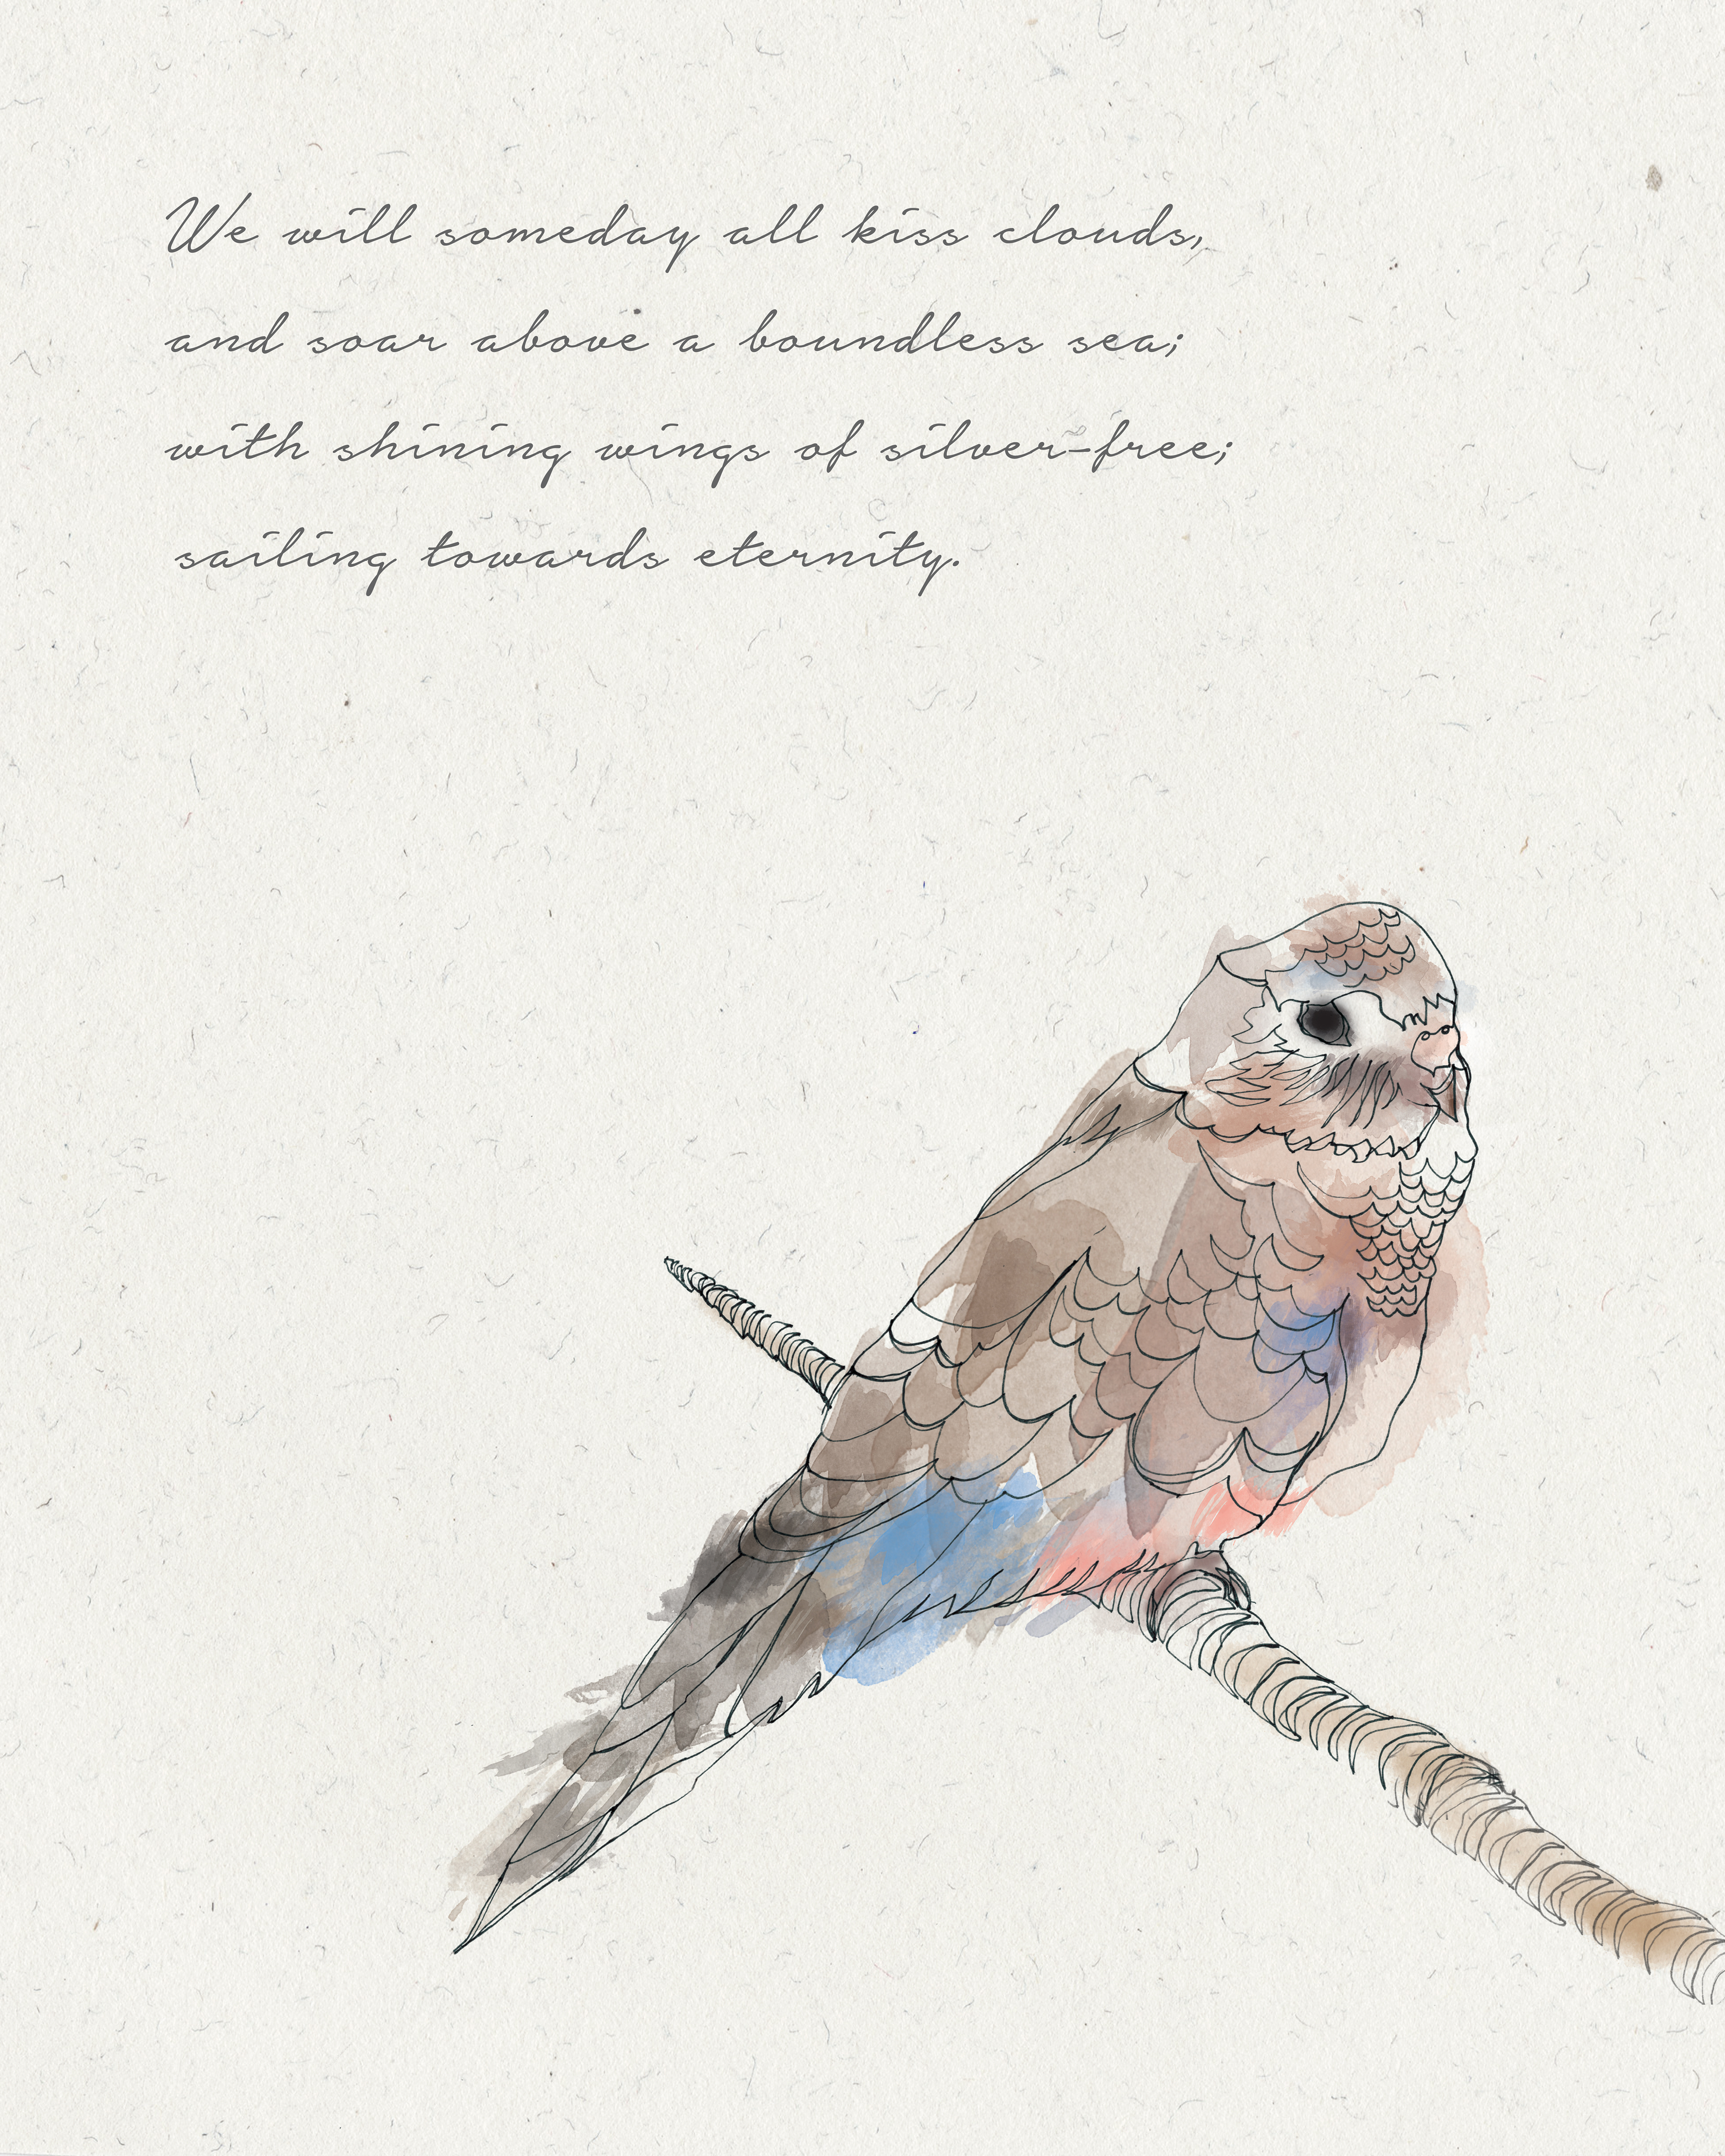 We will someday all kiss clouds,
and soar above a boundless sea;
with shining wings of silver-free;
sailing towards eternity.